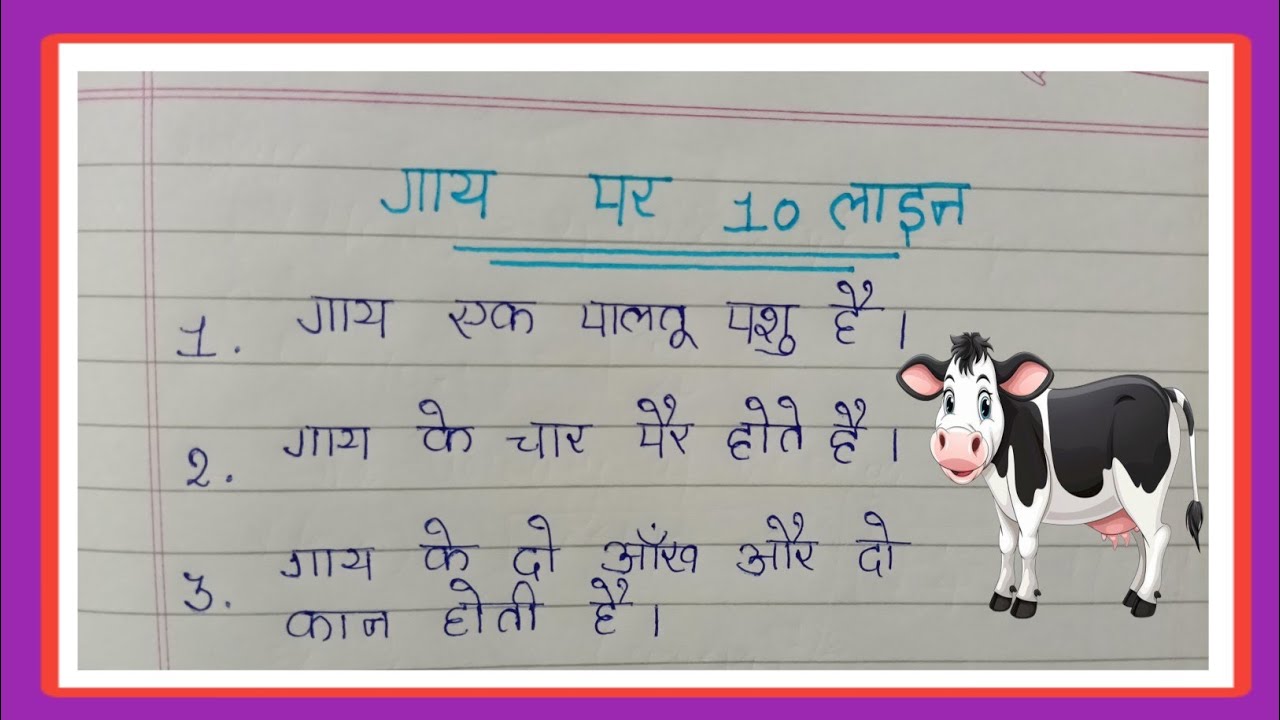 गाय पर 10 लाइन
1. गाय एक पालतू पशु है।
2. गाय के चार पैर होते है।
3. गाय के दो आँख और दो
कान होती है।